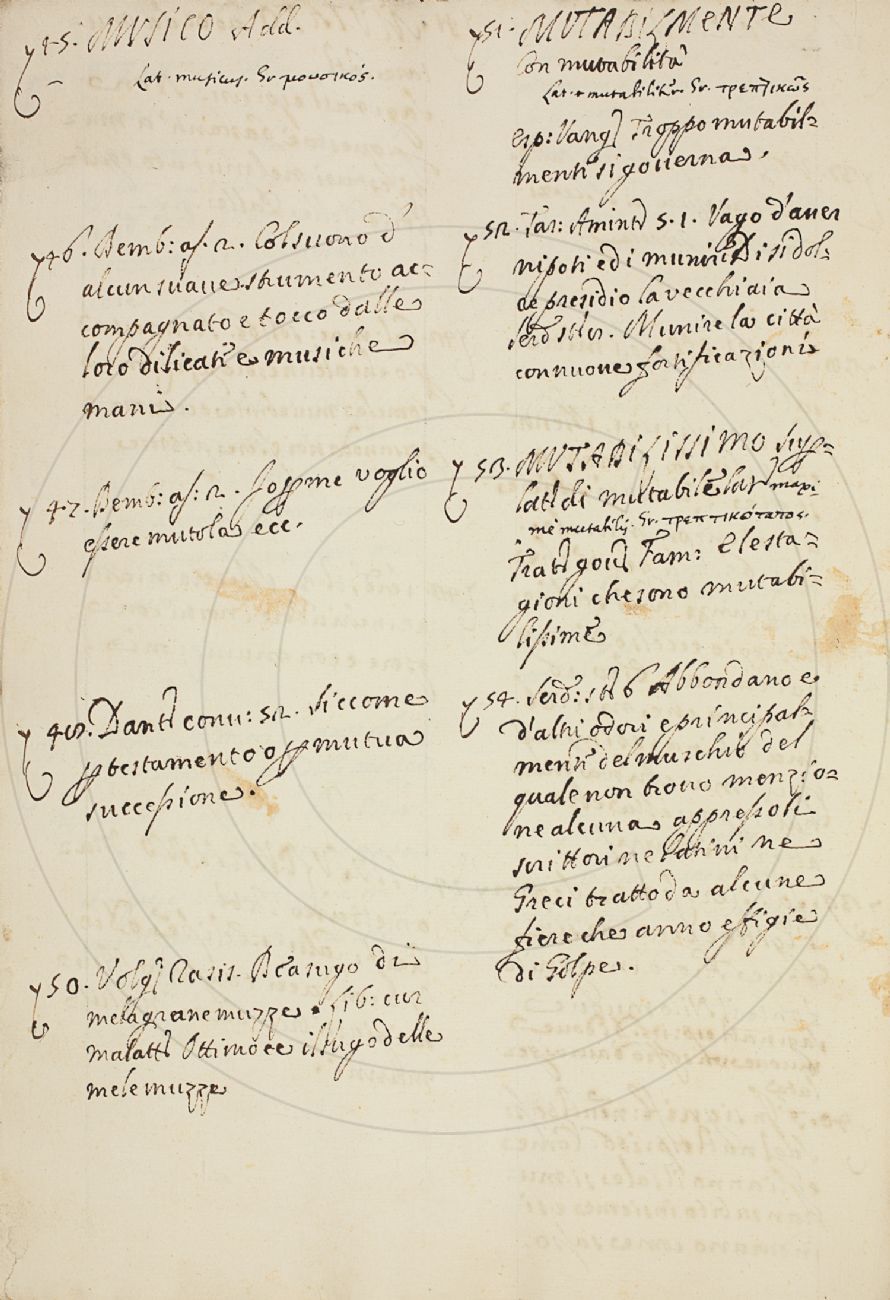 45. MUSICO Add.
Lat. musicus. Gr. μουσικός.
46. Bemb: as. 2. Col suono d'
alcun suave strumento ac=
compagnato e tocco dalle
loro dilicate e musiche
mani.
47. Bemb: as: 2. Io per me voglio
essere mutola ecc.
48. Dant conv: 52. Siccome
per testamento o per mutua
successione.
50. Volg Rasis. Bea sugo di
melagrane muzze. Lib: cur
malatt Ottimo è il sugo delle
mele muzze
51. MUTABILMENTE
Con mutabilità
Lat. mutabiliter. Gr. τρεπτικῶς
esp: Vang Troppo mutabil=
mente si governa.
52. Tas: Amint 5. 1. Vago d'aver
nipoti e di munire Di sì dol=
ce presidio la vecchiaia
Serd stor. Munire la città
con nuove fortificazioni
53. MUTABILISSIMO Super=
lat di mutabile Lat maxi=
me mutabilis. Gr. τρεπτικότατος.
Tratt gov Fam: E le sta=
gioni che sono mutabi=
lissime
54. Serd: st 6 Abbondano e
d'altri odori e principal=
mente del muschio del
quale non trovo menzio=
ne alcuna appresso li
scrittori ne Latini ne
Greci tratto da alcune
fiere che anno effigie
di Golpe.